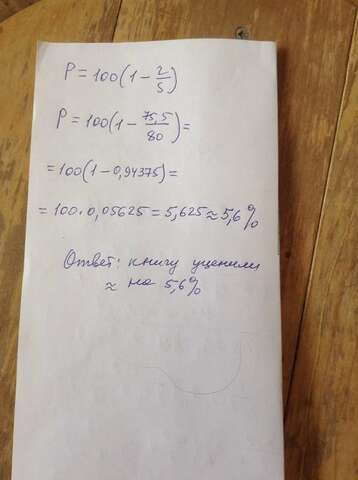 P = 100(1 - 2/5)
P = 100(1 - 75,5/80) =
= 100(1 - 0,94375) =
= 100 · 0,05625 = 5,625 ≈ 5,6%
Ответ: книгу уценили
≈ на 5,6%